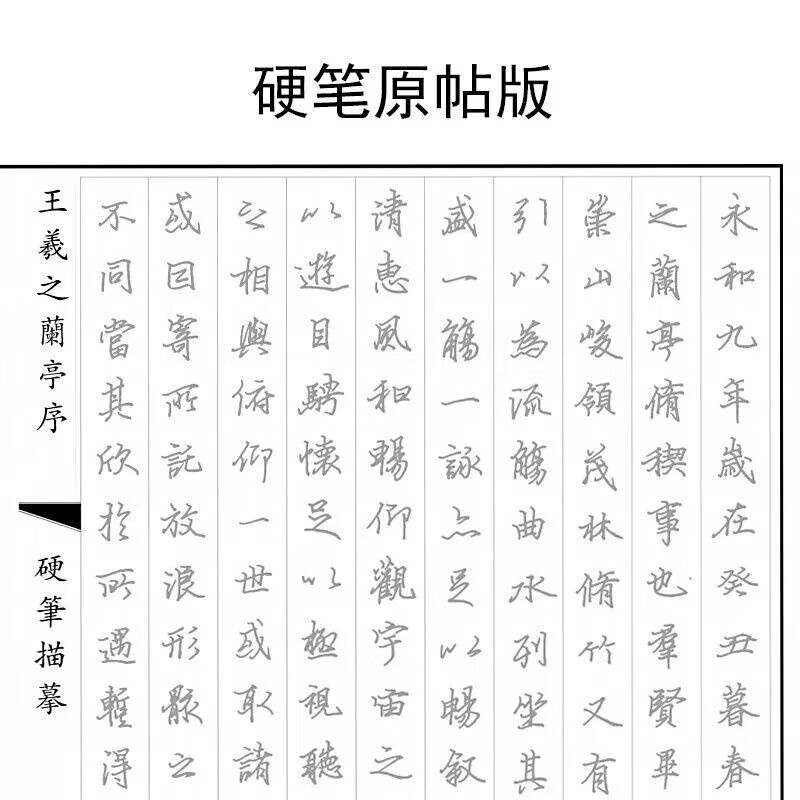 硬笔原帖版
永和九年歲在癸丑暮春
之蘭亭脩稧事也羣賢畢
崇山峻領茂林脩竹又有
引以為流觴曲水列坐其
盛一觴一詠亦足以暢叙
清惠風和暢仰觀宇宙之
以遊目騁懷足以極視聽
之相與俯仰一世或取諸
或因寄所託放浪形骸之
不同當其欣於所遇蹔得
王羲之蘭亭序
硬筆描摹